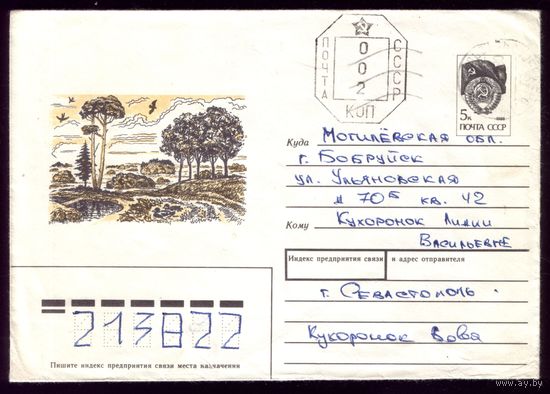 ПОЧТА
СССР
0
0
2
КОП
5к
ПОЧТА СССР
Куда Могилёвская обл.
г. Бобруйск
ул. Ульяновская
д 70б кв. 42
Кому Кухоронок Лидии
Васильевне
Индекс предприятия связи и адрес отправителя
г. Севастополь
Кухоронок Вова
213822
Пишите индекс предприятия связи места назначения
www.ay.by